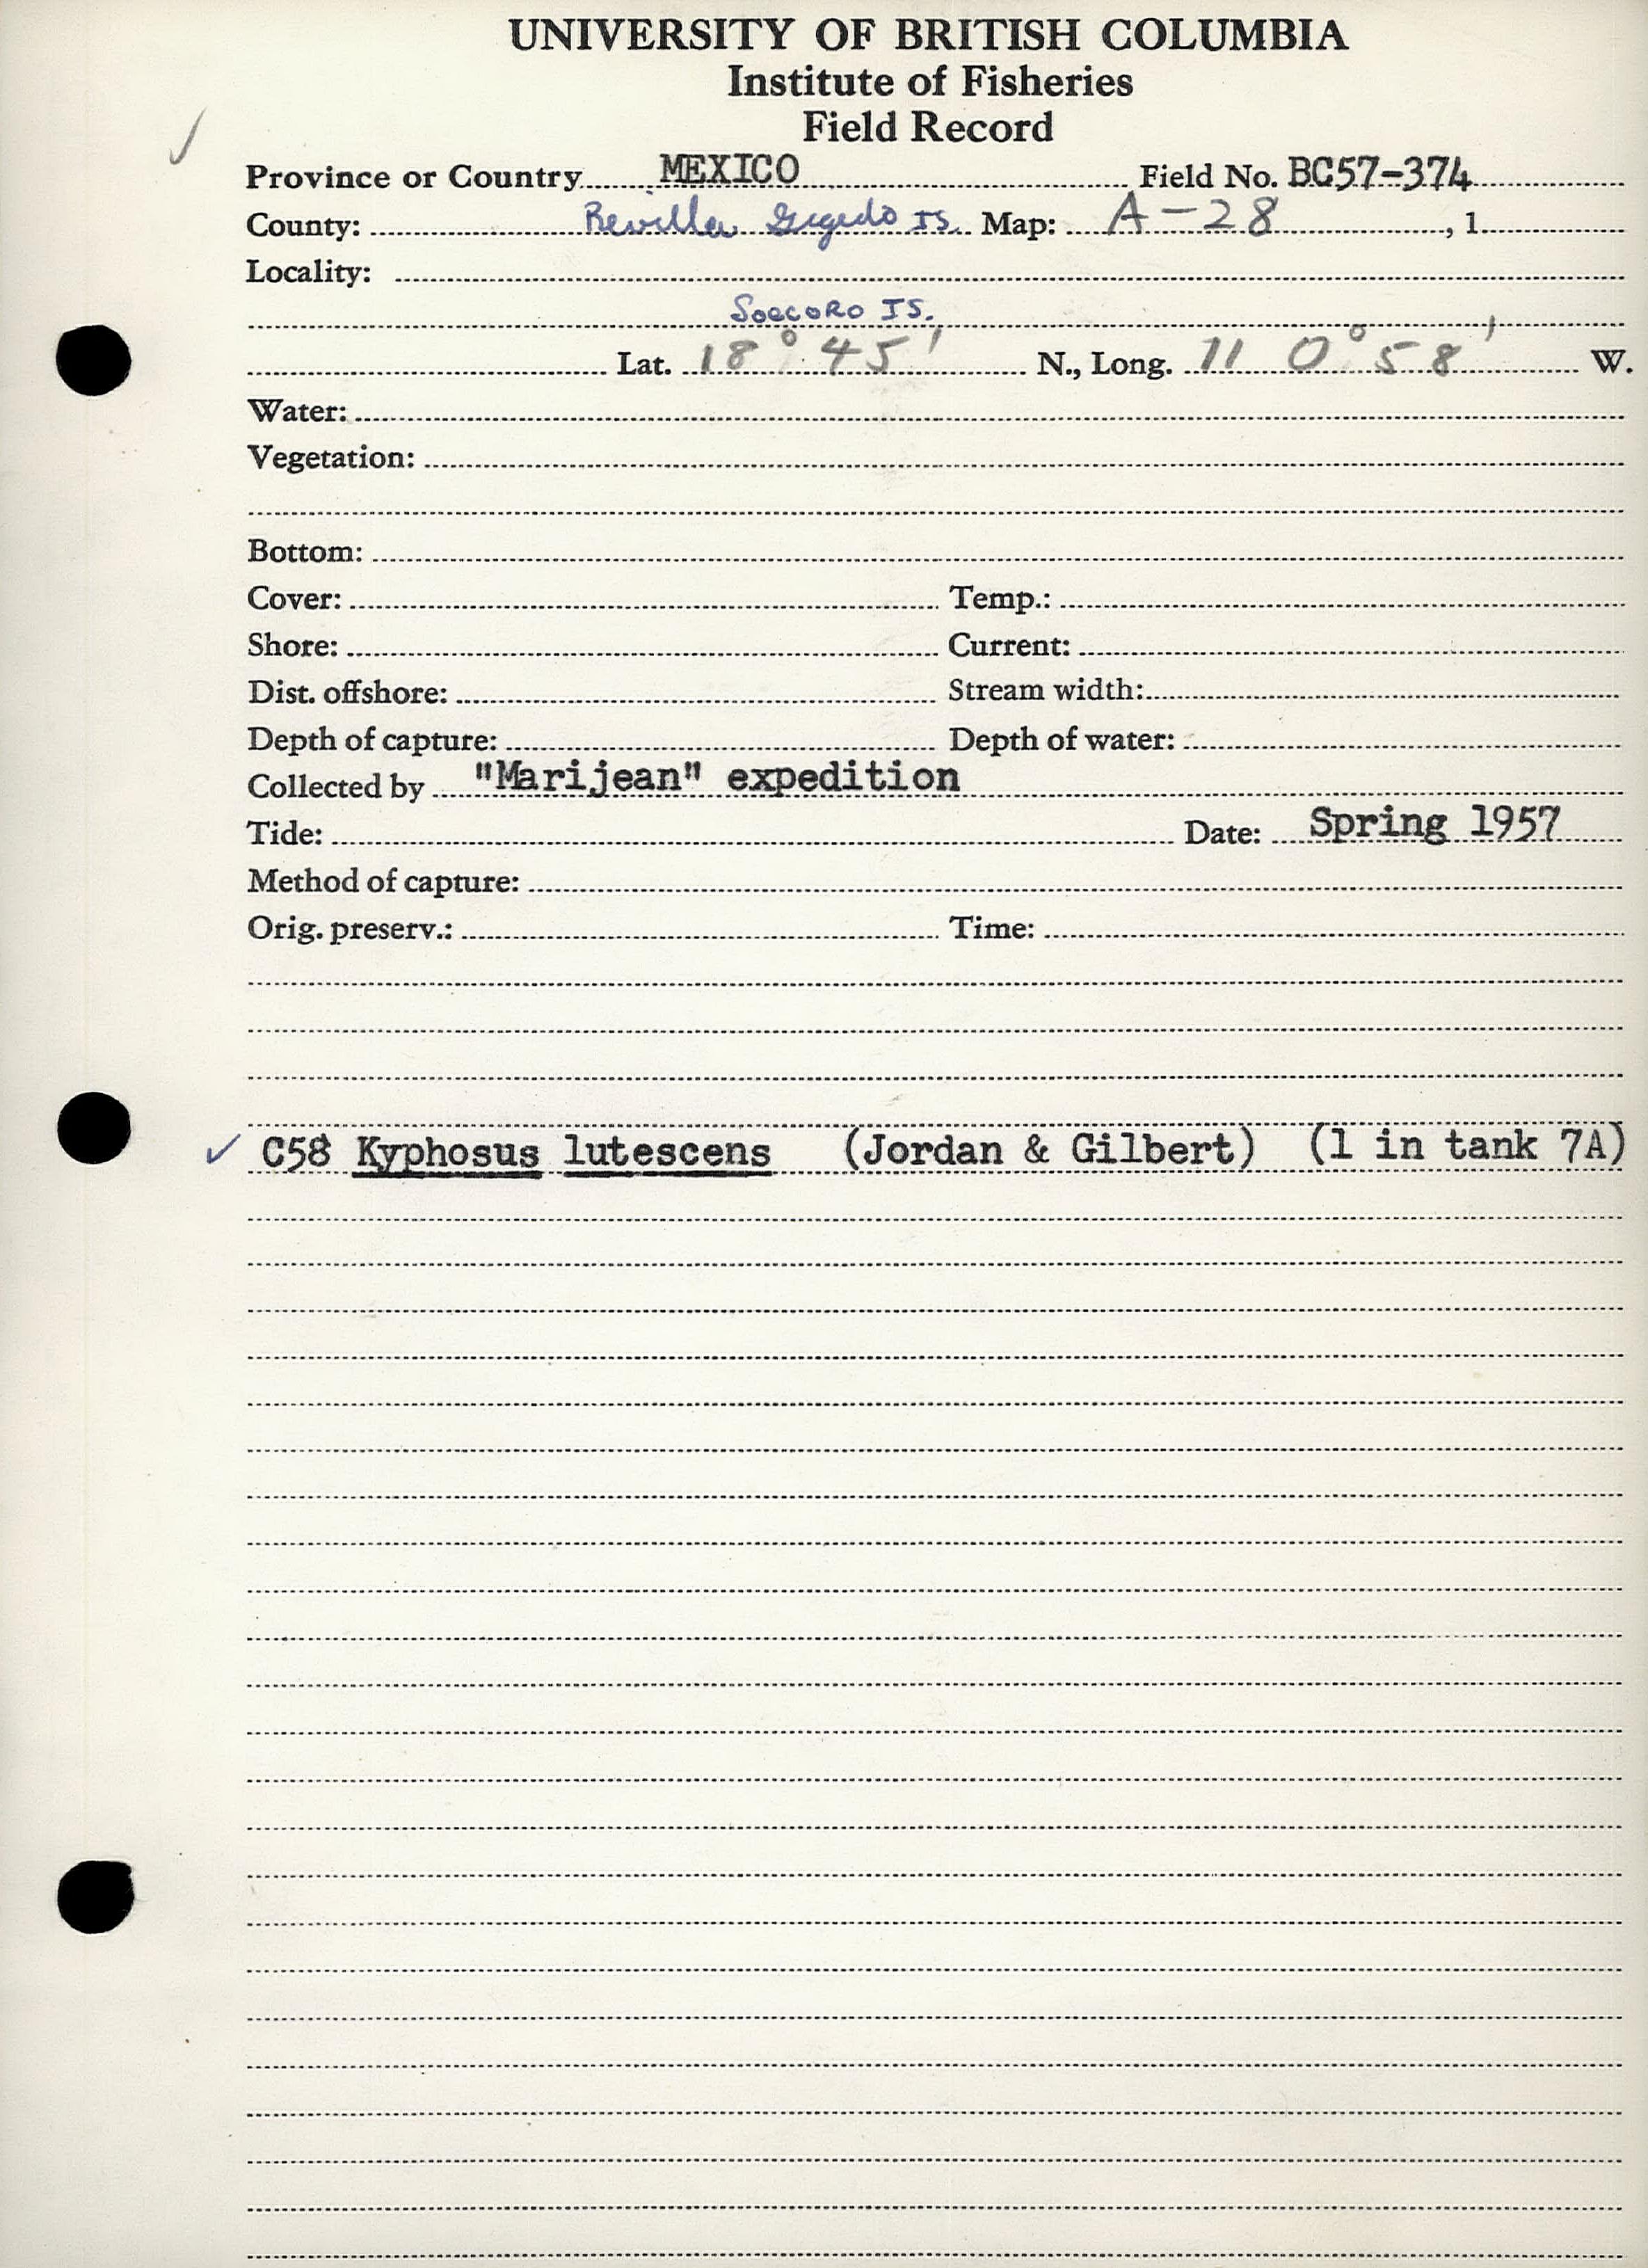 UNIVERSITY OF BRITISH COLUMBIA
Institute of Fisheries
Field Record
Province or Country MEXICO Field No. BC57-374
County: Revilla Gigedo IS. Map: A-28, 1.
Locality:
Soccoro IS.
Lat. 18° 45' N., Long. 110° 58' W.
Water:
Vegetation:
Bottom:
Cover: Temp.:
Shore: Current:
Dist. offshore: Stream width:
Depth of capture: Depth of water:
Collected by "Marijean" expedition
Tide: Date: Spring 1957
Method of capture:
Orig. preserv.: Time:
✓ C58 Kyphosus lutescens (Jordan & Gilbert) (1 in tank 7A)